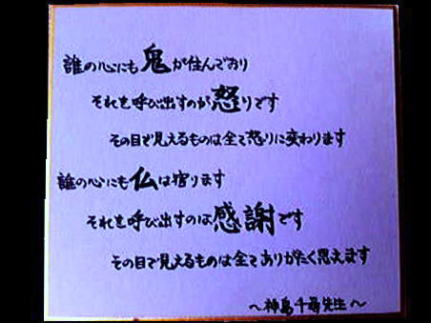 誰の心にも鬼が住んでおり
それを呼び出すのが怒りです
その目で見えるものは全て怒りに変わります
誰の心にも仏は宿ります
それを呼び出すのは感謝です
その目で見えるものは全てありがたく思えます
～神島千尋先生～